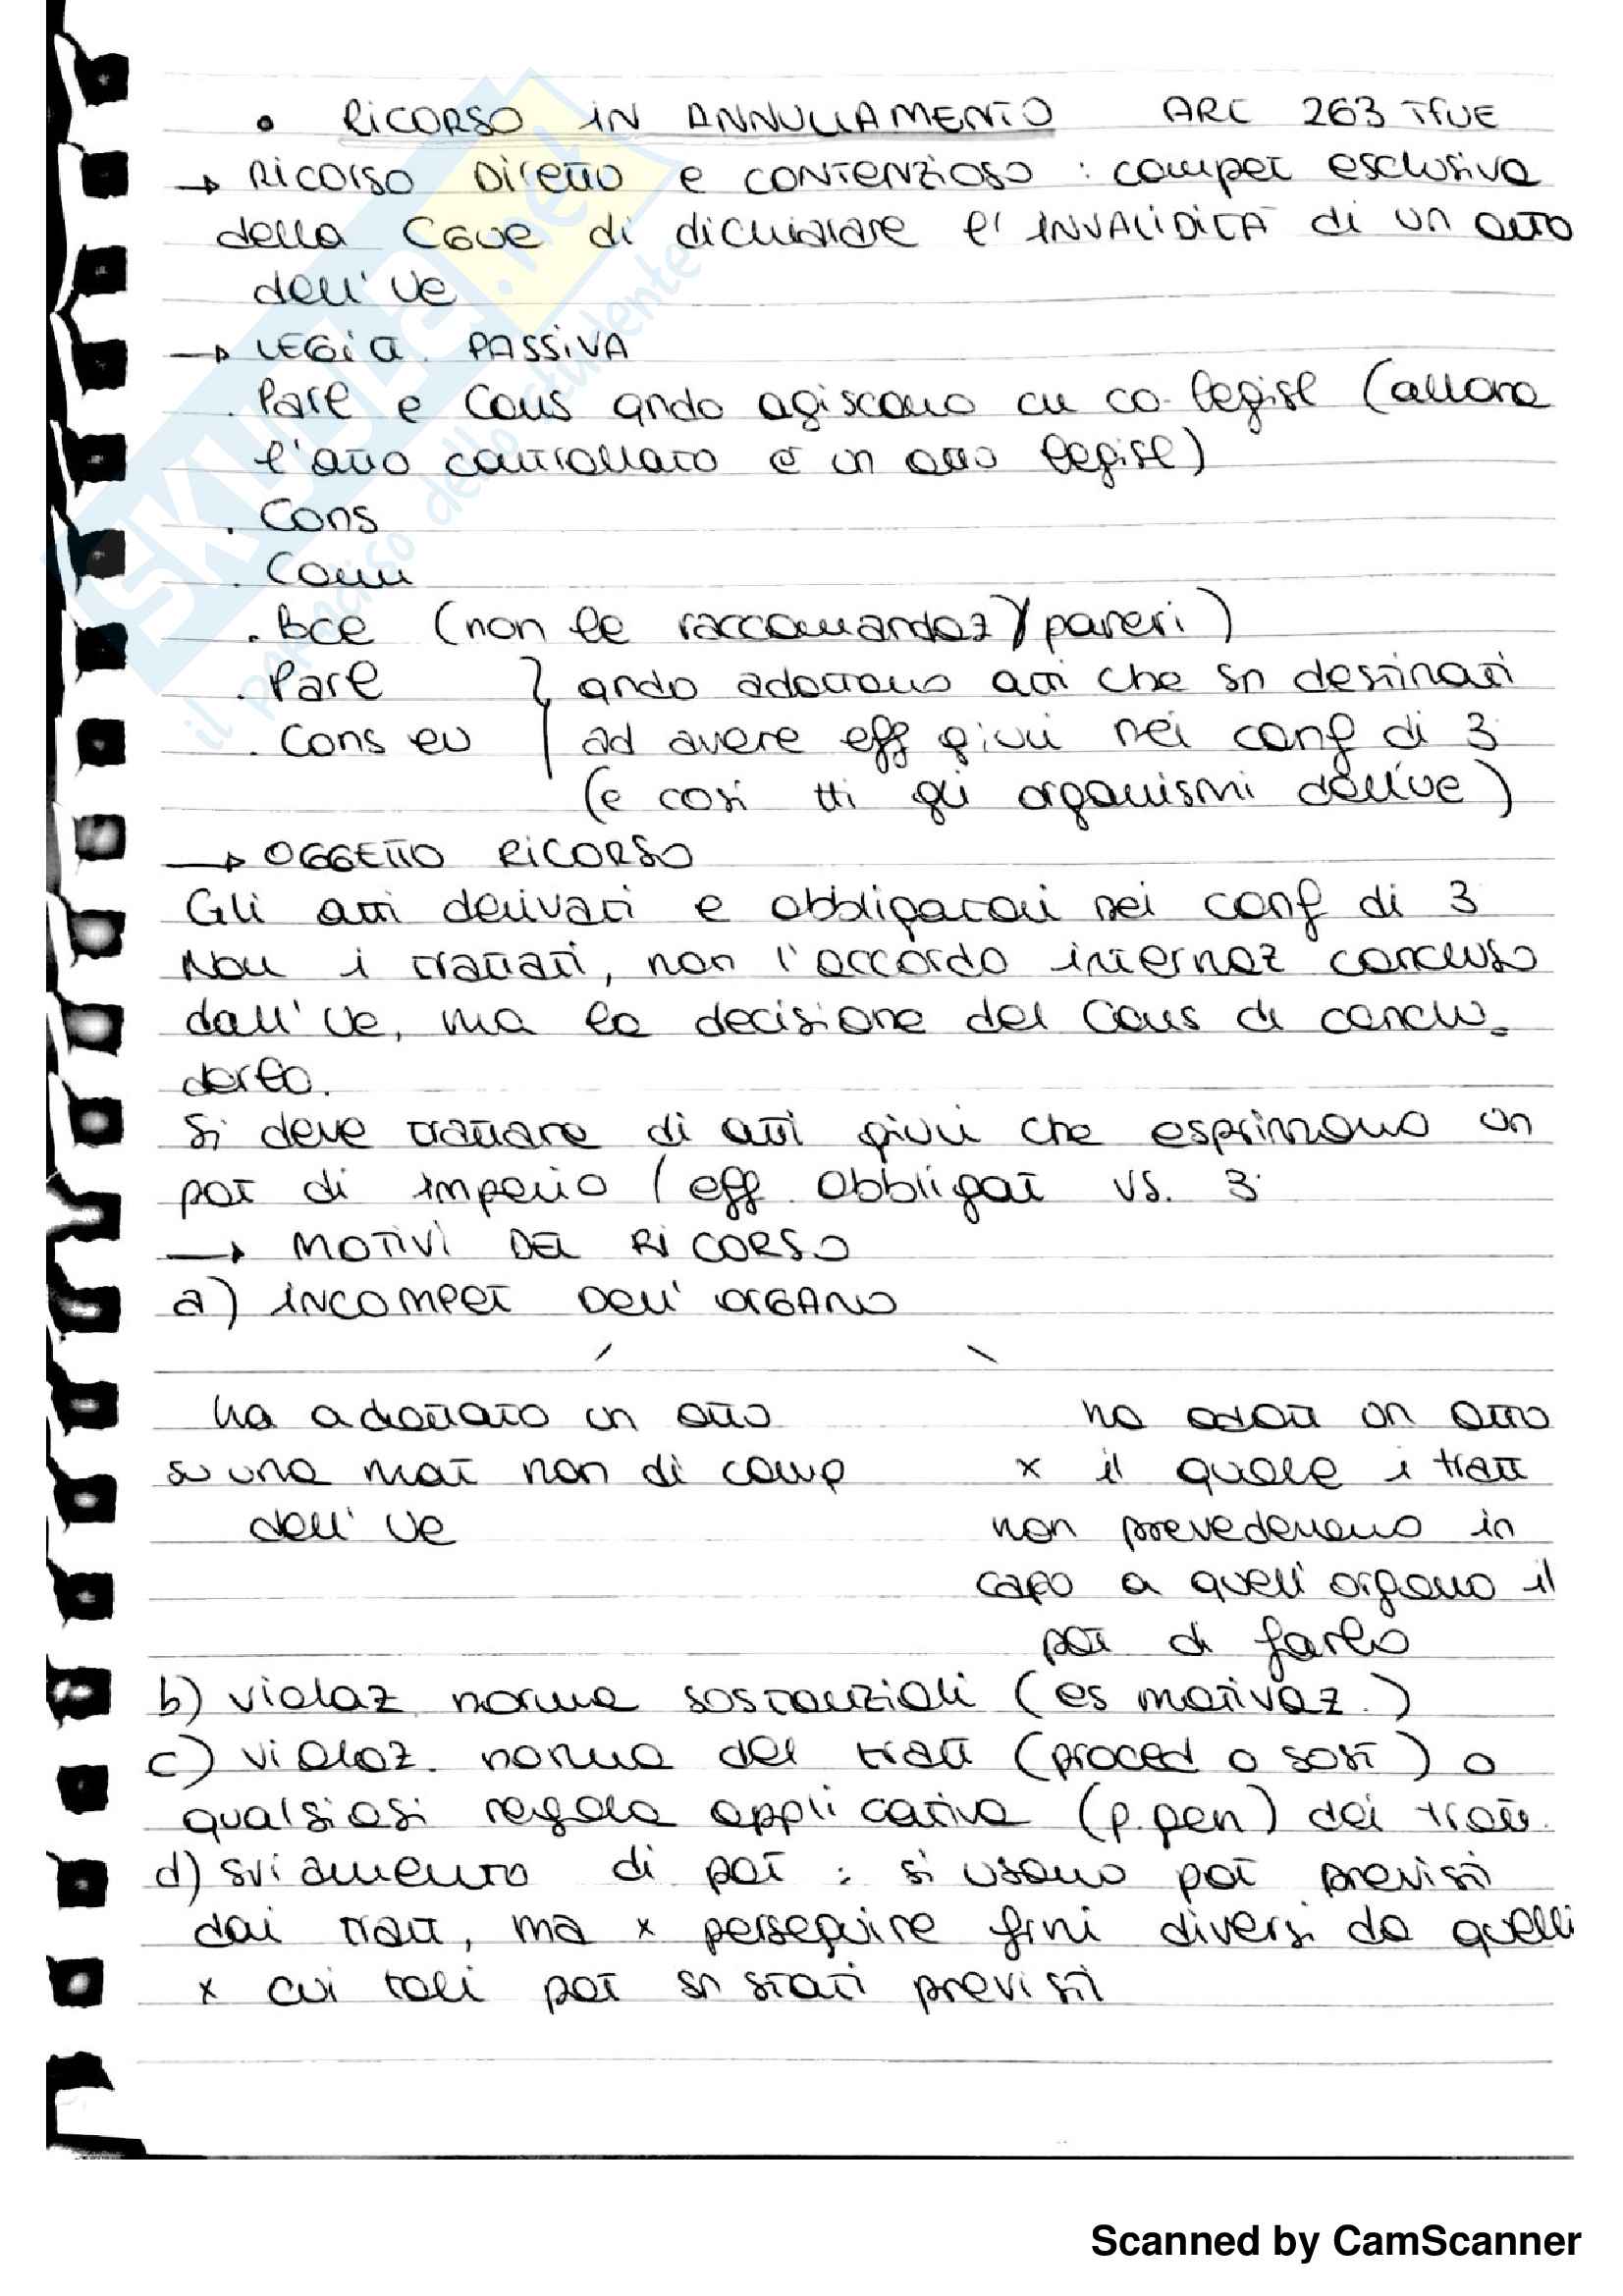 • RICORSO IN ANNULLAMENTO ART 263 TFUE
→ RICORSO DIRETTO e CONTENZIOSO : compet esclusiva
della CGUE di dichiarare l'INVALIDITÀ di un atto
dell'Ue
→ LEGITT. PASSIVA
. Parl e Cons qndo agiscono cm co-legisl (allora
l'atto controllato è un atto legisl)
. Cons
. Comm
. Bce (non le raccomandaz / pareri)
. Parl } qndo adottano atti che sn destinati
. Cons eu ad avere eff giuri nei conf di 3
(e così tti gli organismi dell'Ue)
→ OGGETTO RICORSO
Gli atti derivati e obbligatori nei conf di 3
Non i trattati, non l'accordo internaz concluso
dall'Ue, ma la decisione del Cons di conclu-
derlo.
Si deve trattare di atti giuri che esprimono un
pot di imperio / eff. obbligat vs. 3
→ MOTIVI DEL RICORSO
a) INCOMPET DELL'ORGANO
ha adottato un atto ha adott un atto
su una mat non di comp x il quale i tratt
dell'Ue non prevedevano in
capo a quell'organo il
pot di farlo
b) violaz norme sostanziali (es motivaz.)
c) violaz. norme del tratt (proced o sost) o
qualsiasi regola applicativa (p.gen) dei tratt.
d) sviamento di pot : si usano pot previsti
dai tratt, ma x perseguire fini diversi da quelli
x cui tali pot sn stati previsti
SKUOLA.net
il paradiso dello studente
Scanned by CamScanner